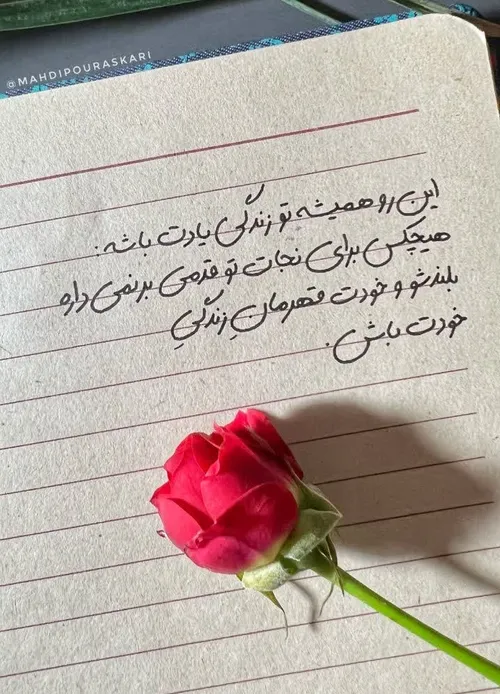 @MAHDIPOURASKARI
این رو همیشه تو زندگی یادت باشه :
هیچکس برای نجات تو قدمی بر نمی داره
بلند شو و خودت قهرمانِ زندگیِ
خودت باش.